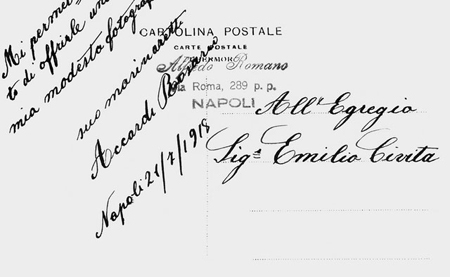 Mi permet
to di offrirle una
mia modesta fotograf
suo marinaretto
Accardi
Napoli 21/7/1918
CARTOLINA POSTALE
CARTE POSTALE
Alfredo Romano
Via Roma, 289 p. p.
NAPOLI
All' Egregio
Sigª Emilio Civita